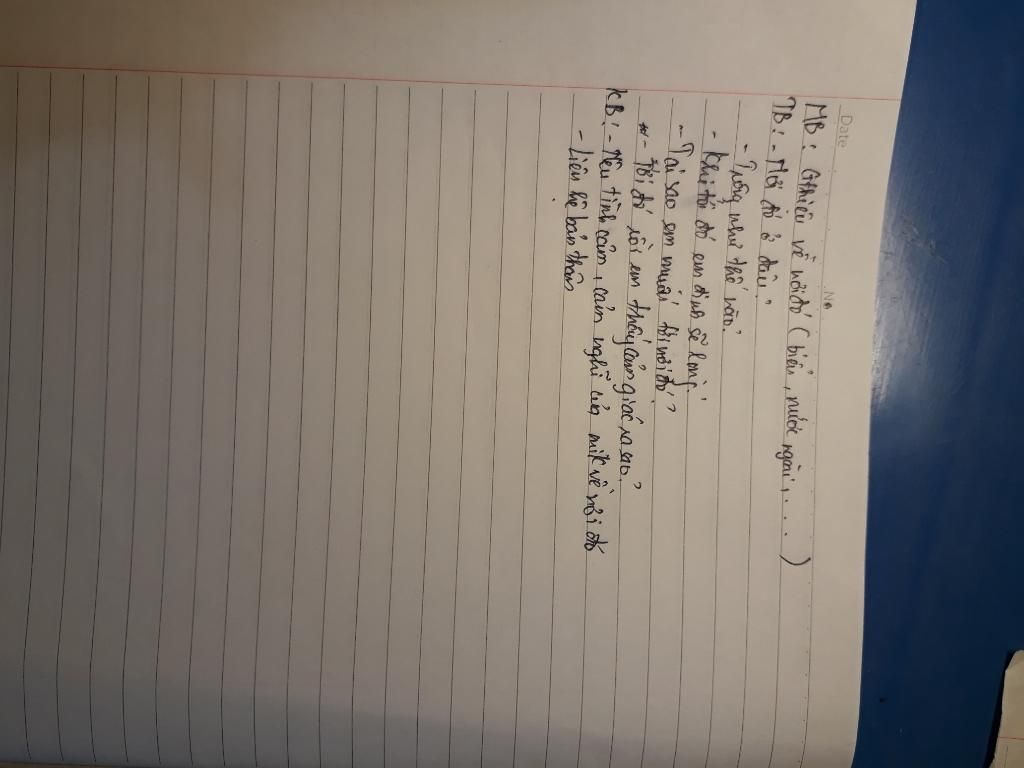 Date
No
MB: Gthiệu về nơi đó (biển, nước ngoài, ....)
TB: - Nơi đó ở đâu?
- Trông như thế nào?
- Khi tới đó em định sẽ làm gì?
- Tại sao em muốn tới nơi đó?
- Tới đó rồi em thấy cảm giác ra sao?
KB: - Nêu tình cảm, cảm nghĩ của mik về nơi đó
- Liên hệ bản thân